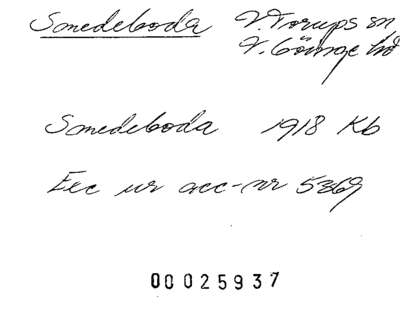 Smedeboda V. Torups sn
V. Göinge hd
Smedeboda 1918 Kb
Exc ur acc-nr 5369
00025937